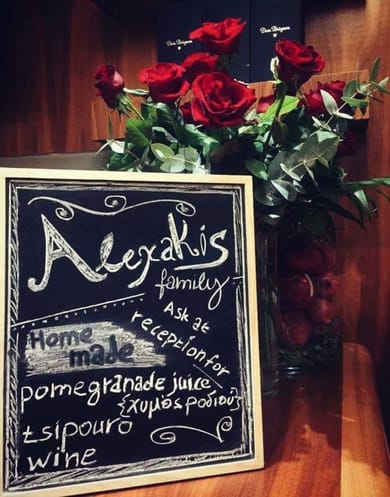 Dom Pérignon
Dom Pérignon
Alexakis
family
Ask at
reception for
Home
made
pomegranade juice
{χυμός ροδιού}
tsipouro
wine